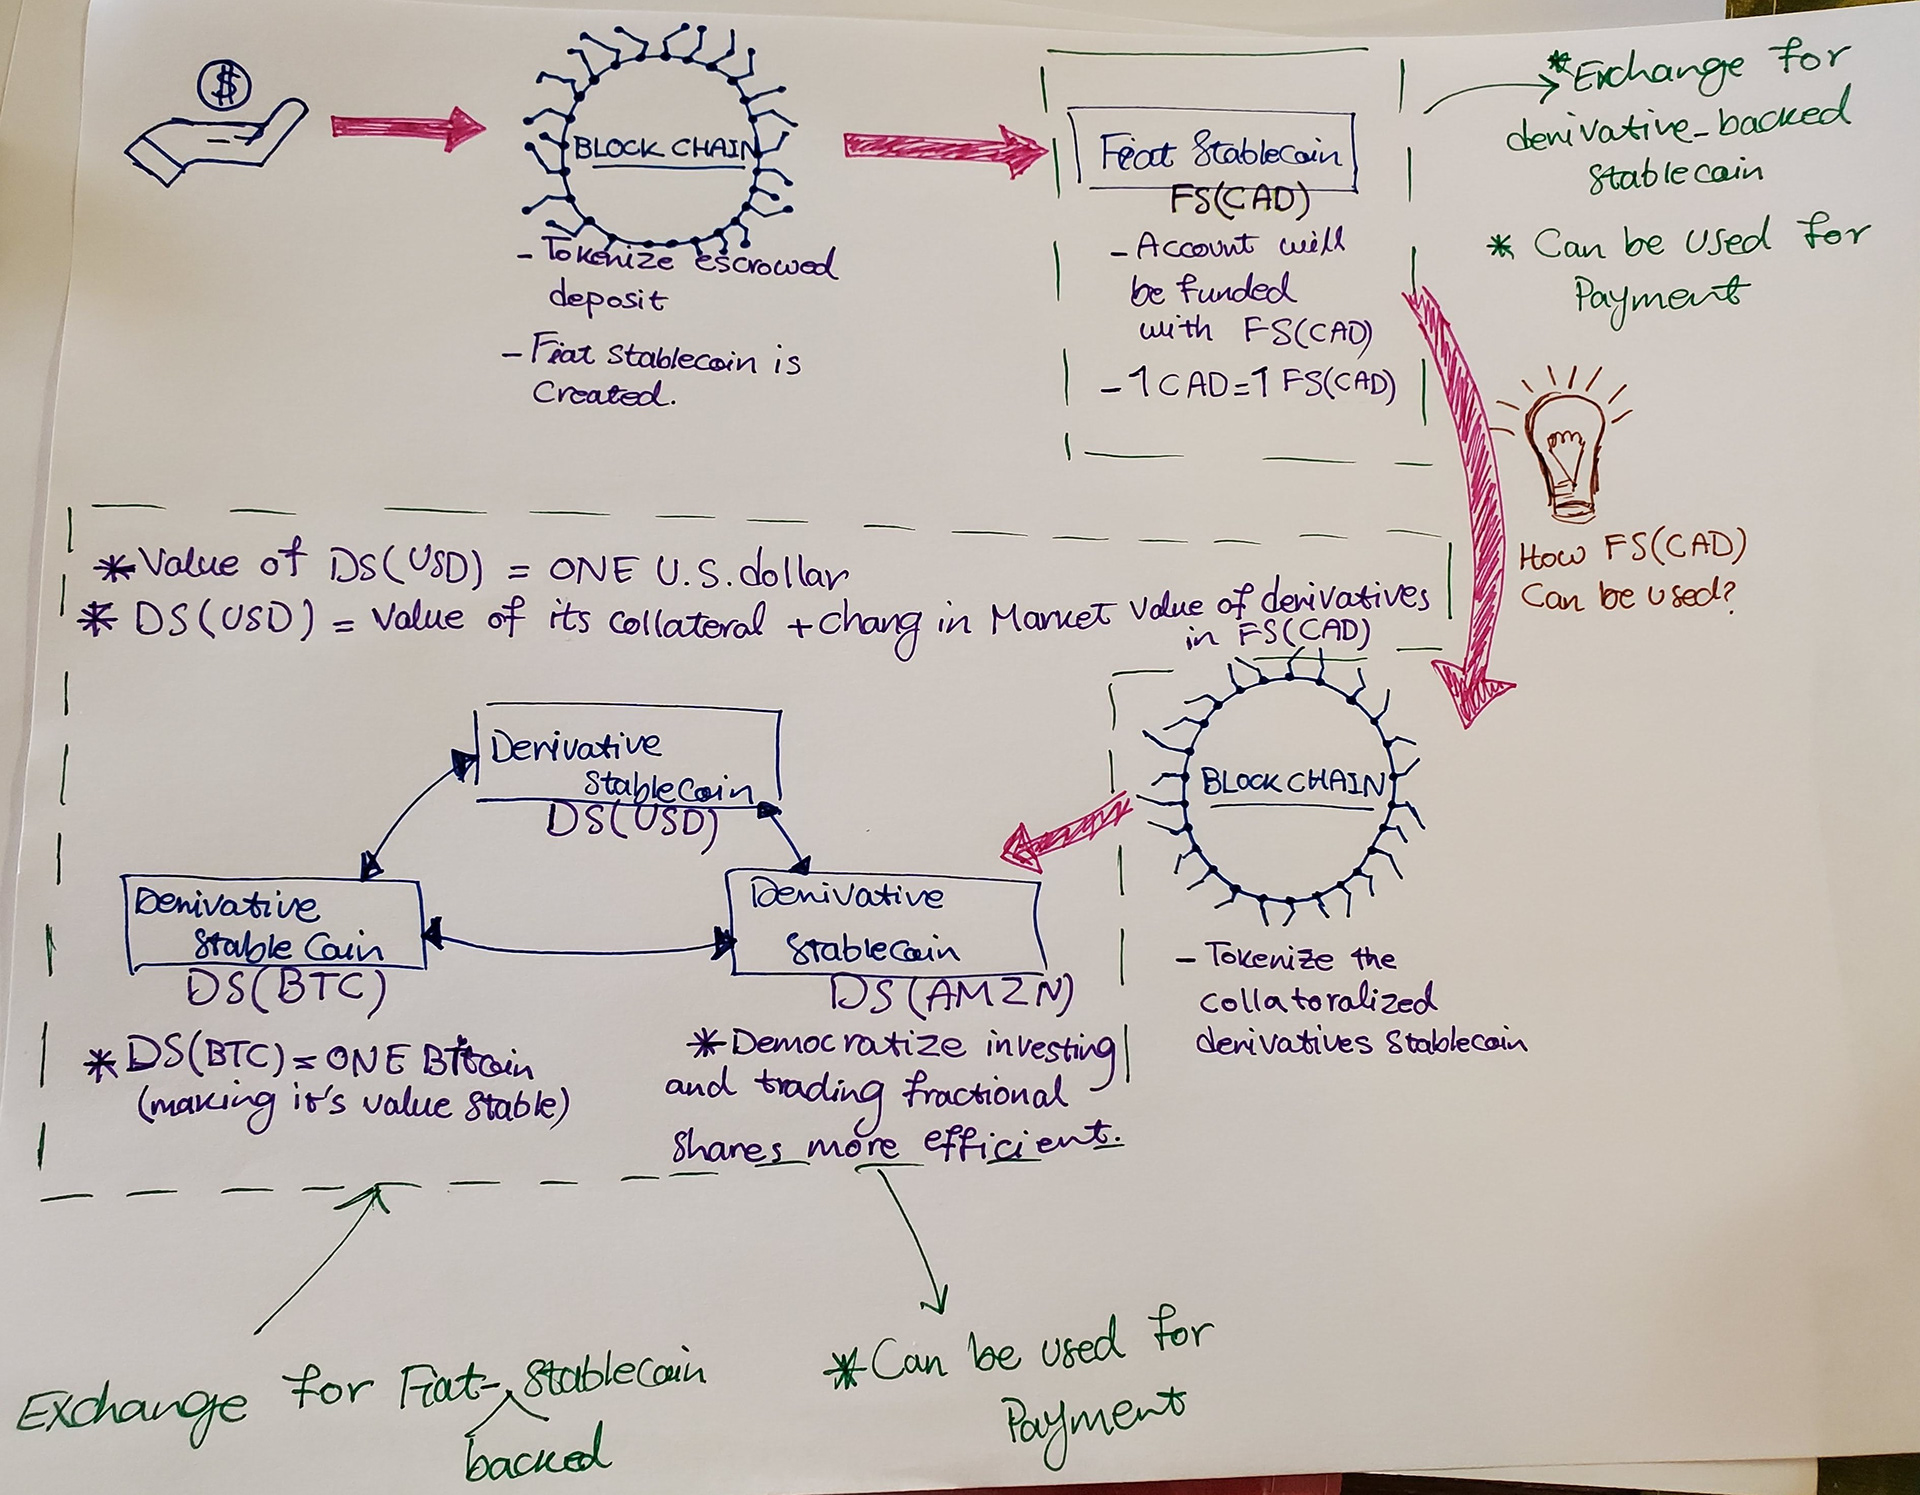 $
BLOCK CHAIN
- Tokenize escrowed
deposit
- Fiat Stablecoin is
Created.
Fiat Stablecoin
FS(CAD)
- Account will
be funded
with FS(CAD)
- 1 CAD = 1 FS(CAD)
* Exchange for
derivative-backed
Stablecoin
* Can be used for
Payment
How FS(CAD)
Can be used?
* Value of DS(USD) = ONE U.S. dollar
* DS(USD) = Value of its collateral + chang in Market Value of derivatives
in FS(CAD)
Derivative
StableCoin
DS(USD)
BLOCK CHAIN
Derivative
Stable Coin
DS(BTC)
Derivative
StableCoin
DS(AMZN)
- Tokenize the
collatoralized
derivatives Stablecoin
* DS(BTC) = ONE Bitcoin
(making it's value stable)
* Democratize investing
and trading fractional
Shares more efficient.
Exchange for Fiat- Stablecoin
backed
* Can be used for
Payment